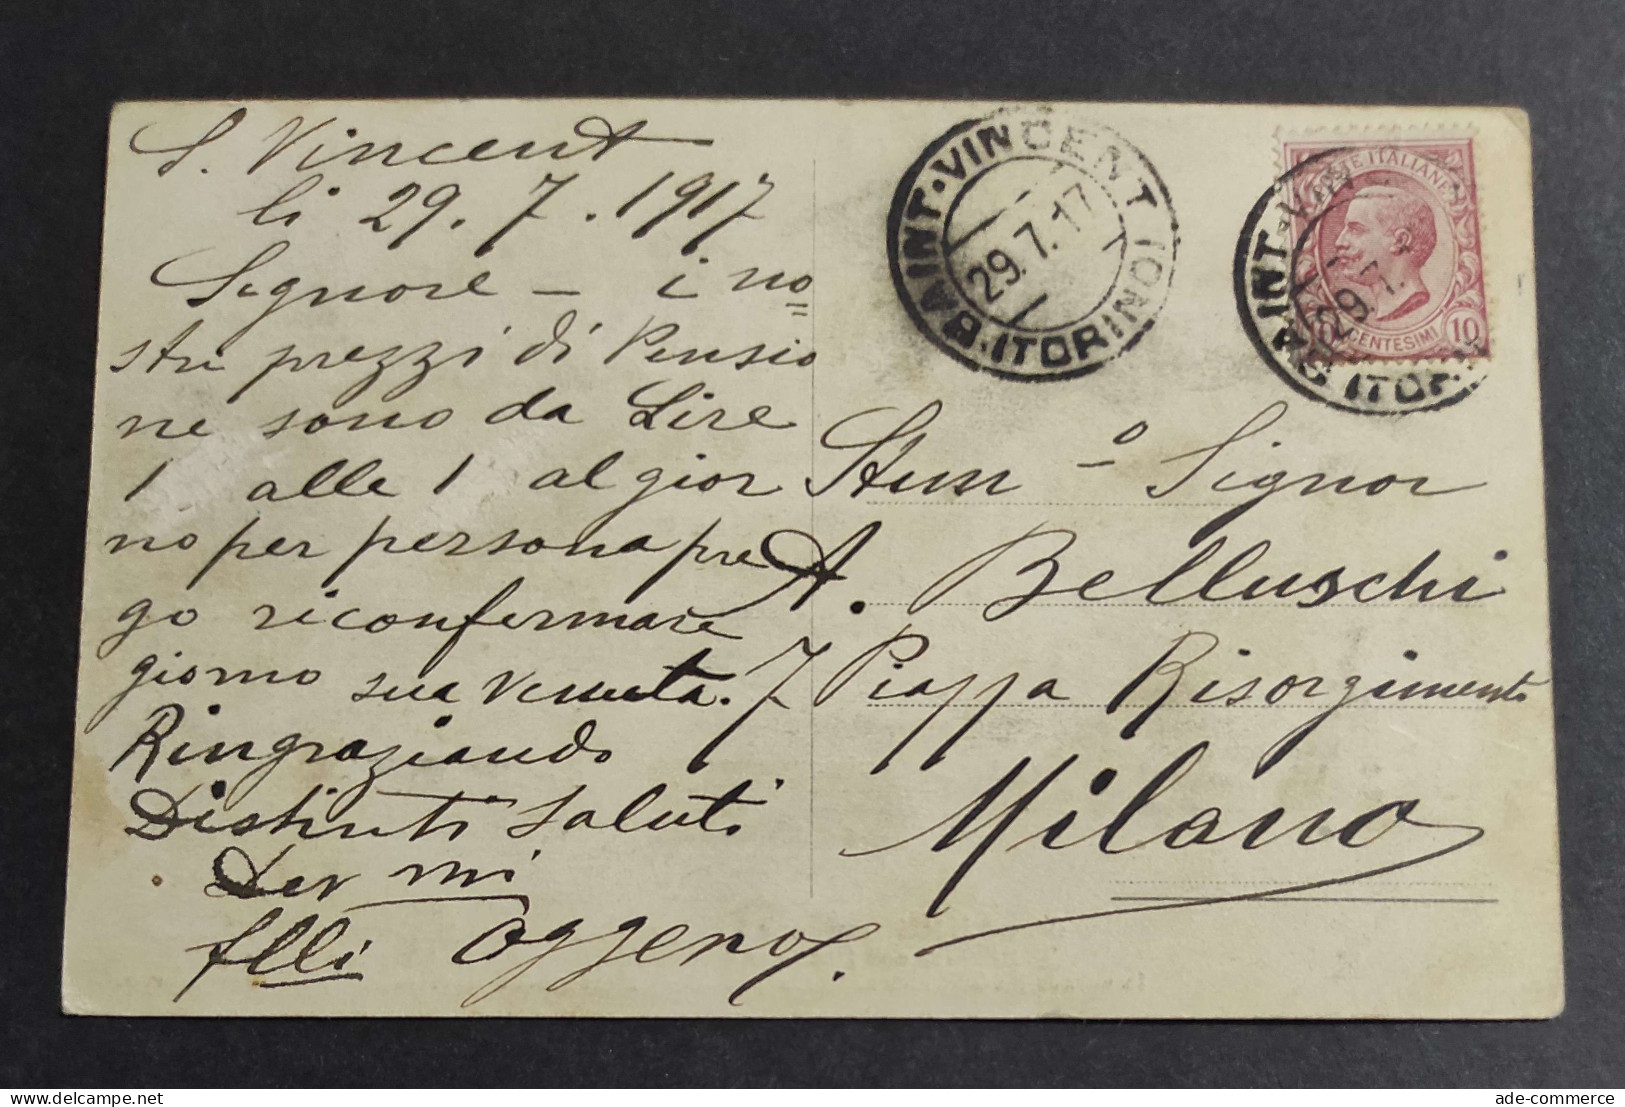 S. Vincent
li 29. 7. 1917
Signore — i no=
stri prezzi di Pensio
ne sono da Lire
1 alle 1 al gior
no per persona pre
go riconfermare
giorno sua venuta.
Ringraziando
Distinti saluti
Dev mi
flli Oggero
SAINT-VINCENT (TORINO)
29.7.17
SAINT-VIN
29.7.
(TORIN
POSTE ITALIANE
CENTESIMI 10
Stim o Signor
A. Belluschi
7 Piazza Risorgimento
Milano
ade-commerce